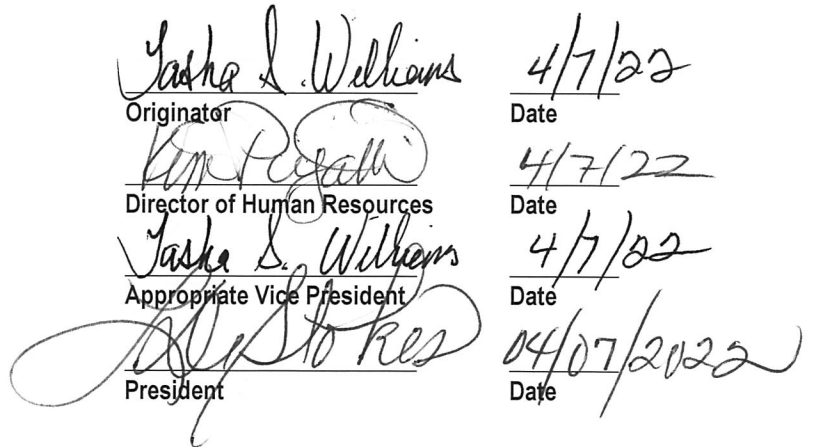 Tasha S. Williams 4/7/22
Originator Date
Kim 4/7/22
Director of Human Resources Date
Tasha S. Williams 4/7/22
Appropriate Vice President Date
Stokes 04/07/2022
President Date